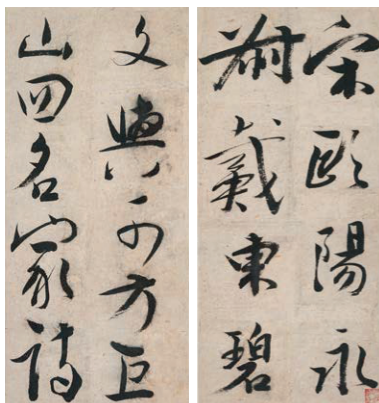 宋歐陽永
叔戴東碧
文與可方巨
山四名家詩